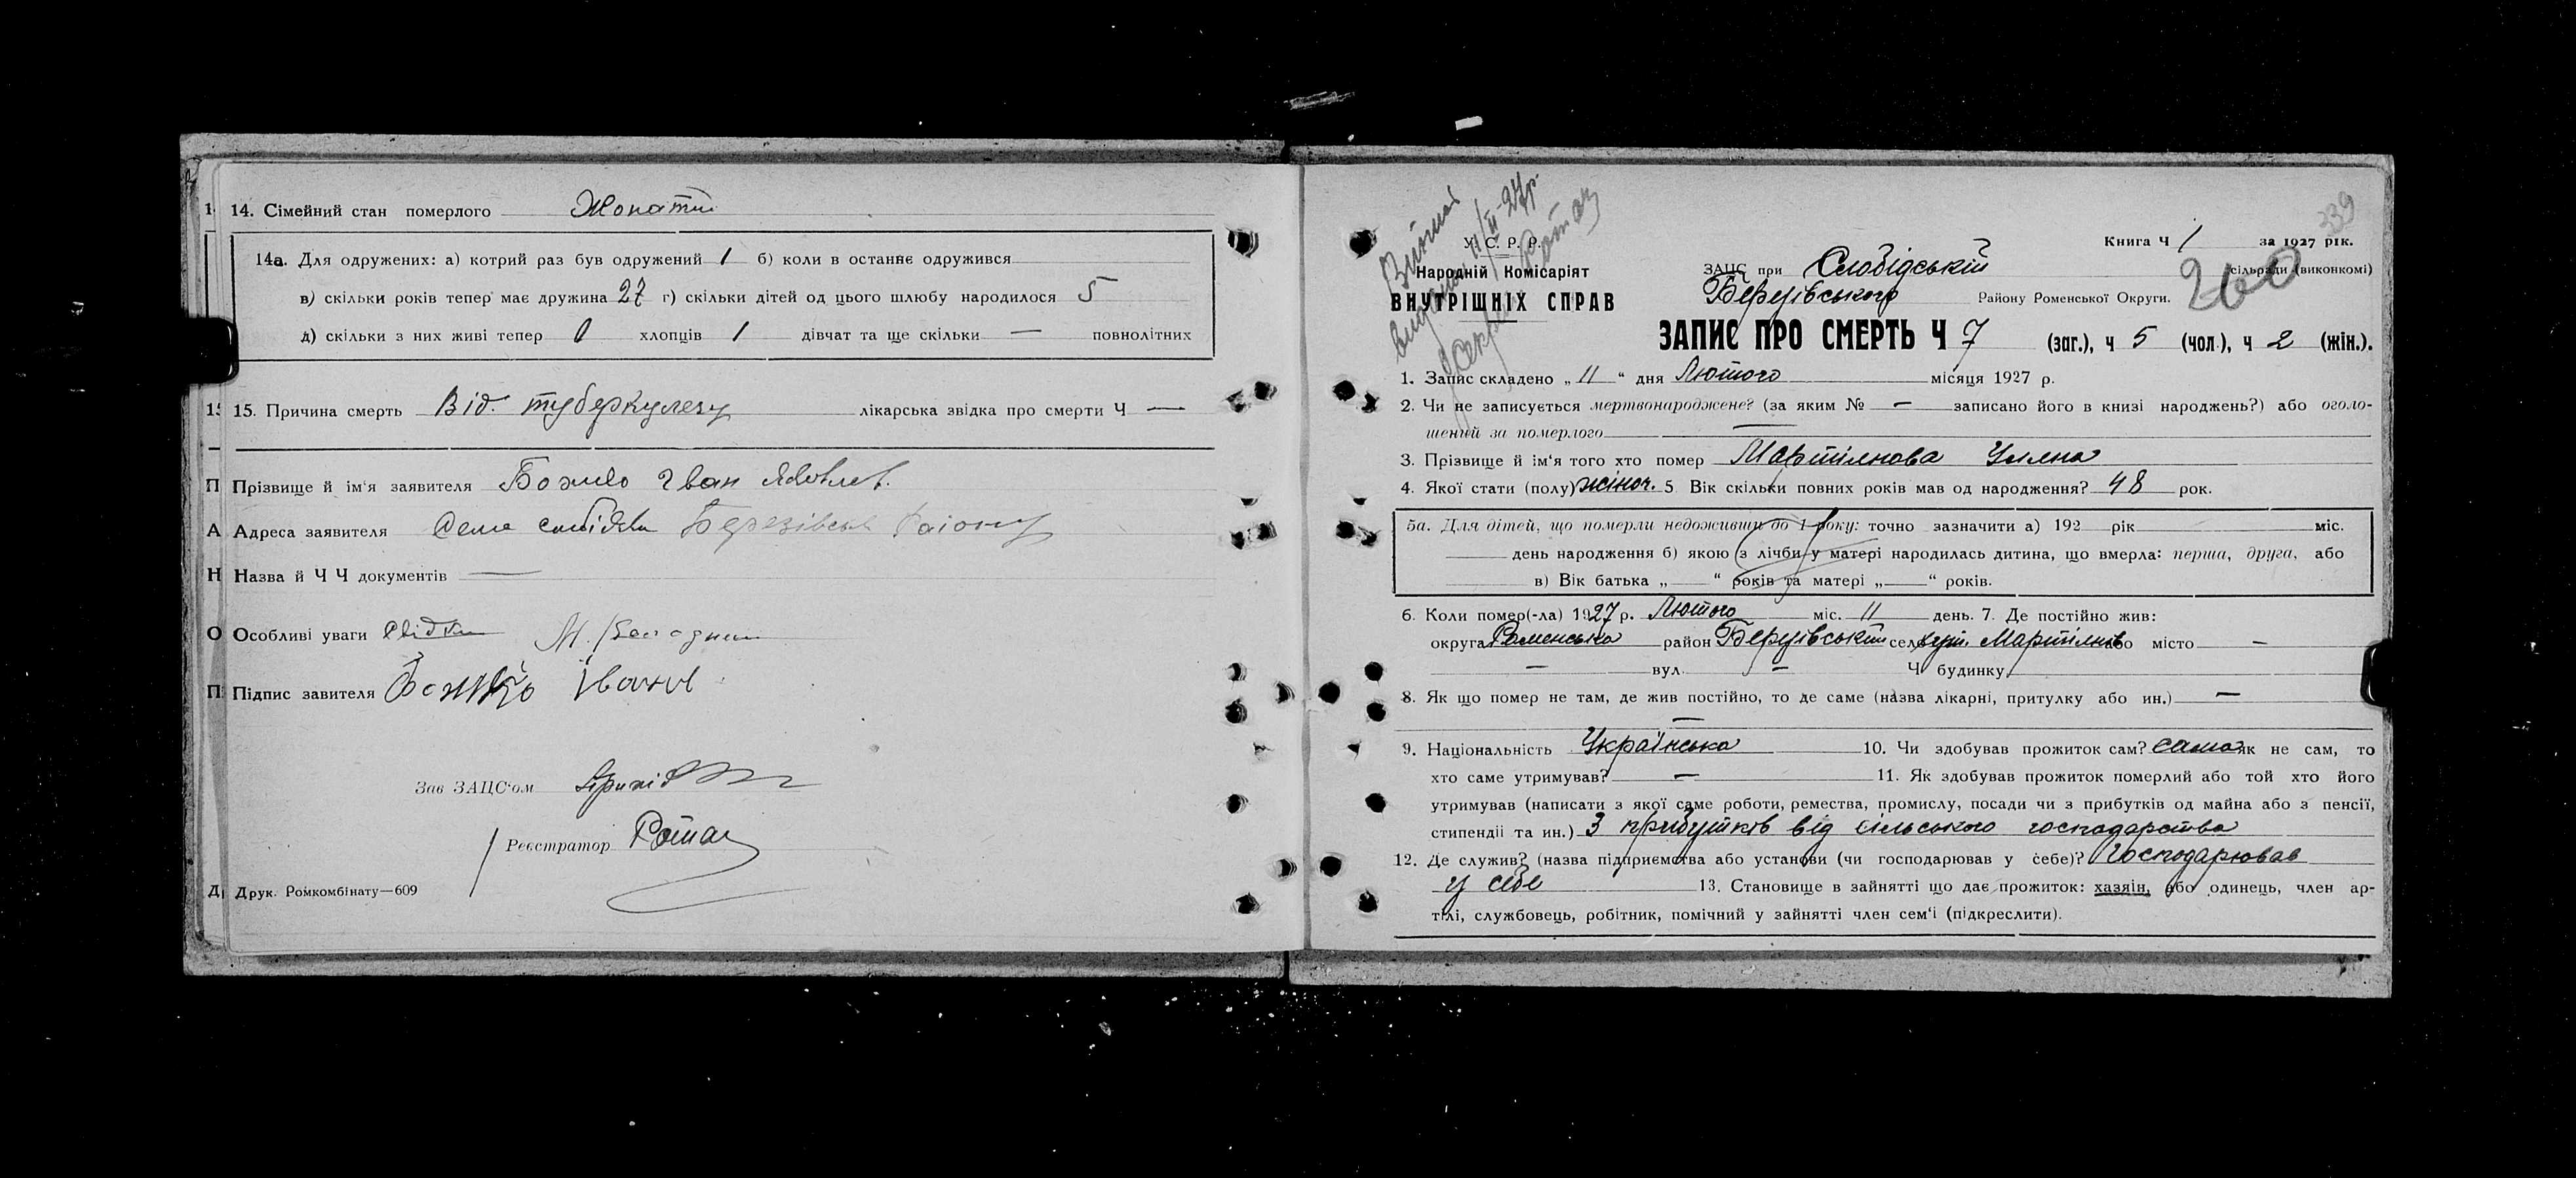 14. Сімейний стан померлого Жонатий
14а. Для одружених: а) котрий раз був одружений 1 б) коли в останнє одружився
в) скільки років тепер має дружина 27 г) скільки дітей од цього шлюбу народилося 5
д) скільки з них живі тепер 0 хлопців 1 дівчат та ще скільки — повнолітних
15. Причина смерть Від туберкулезу лікарська звідка про смерти Ч —
Прізвище й ім'я заявителя Божко Іван Яковлев.
Адреса заявителя Села Березівськ Району
Назва й Ч Ч документів —
Особливі уваги Свідки М.
Підпис завителя Божко Іван
Зав ЗАЦС'ом
Реєстратор Ротач
Друк. Ромкомбінату—609
339
У. С. Р. Р.
Народній Комісаріят
ВНУТРІШНІХ СПРАВ
Книга Ч 1 за 1927 рік.
ЗАЦС при Слобідській сільради (виконкомі)
Березівського Району Роменської Округи.
260
ЗАПИС ПРО СМЕРТЬ Ч 7 (заг.), ч 5 (чол.), ч 2 (жін.).
1. Запис складено „ 11 “ дня Лютого місяця 1927 р.
2. Чи не записується мертвонароджене? (за яким № — записано його в книзі народжень?) або оголо-
шений за померлого —
3. Прізвище й ім'я того хто помер Мартинова Уляна
4. Якої стати (полу) жіноч. 5 Вік скільки повних років мав од народження? 48 рок.
5а. Для дітей, що померли недоживши до 1 року: точно зазначити а) 192 рік міс.
день народження б) якою (з лічби у матері народилась дитина, що вмерла: перша, друга, або
в) Вік батька „ “ років та матері „ “ років.
6. Коли помер(-ла) 1927 р. Лютого міс. 11 день. 7. Де постійно жив:
округа Роменська район Березівський село хут. або місто —
— вул. — Ч будинку
8. Як що помер не там, де жив постійно, то де саме (назва лікарні, притулку або ин.) —
—
9. Національність Українська 10. Чи здобував прожиток сам? сама як не сам, то
хто саме утримував? — 11. Як здобував прожиток померлий або той хто його
утримував (написати з якої саме роботи, ремества, промислу, посади чи з прибутків од майна або з пенсії,
стипендії та ин.) З прибутків від сільського господарства
12. Де служив? (назва підприємства або установи (чи господарював у себе)? Господарював
у себе 13. Становище в зайнятті що дає прожиток: хазяїн, або одинець, член ар-
тілі, службовець, робітник, помічний у зайнятті член сем'і (підкреслити).